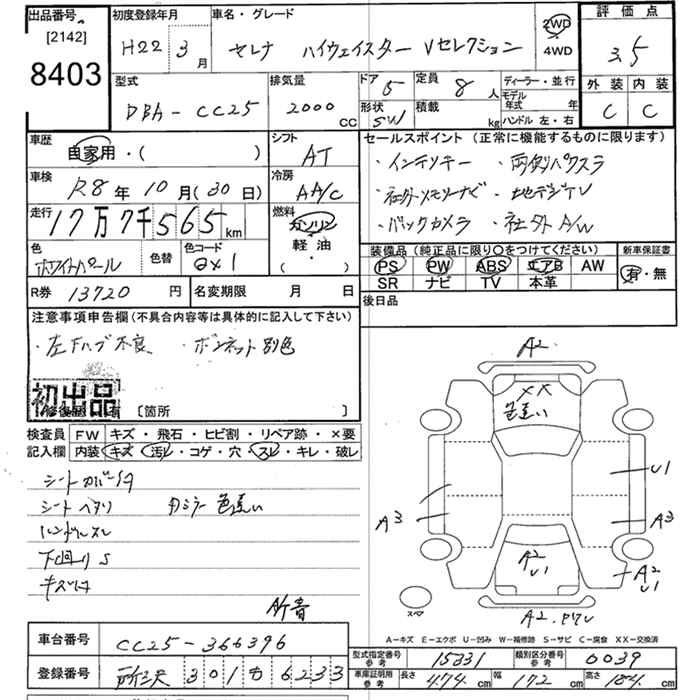 出品番号
[2142]
8403
初度登録年月
H22年 3月
車名・グレード
セレナ ハイウェイスター Vセレクション
2WD
4WD
評価点
3.5
外装 内装
C C
型式
DBA-CC25
排気量
2000 CC
ドア 5
定員 8 人
形状 SW
積載 kg
ディーラー・並行
モデル年式 年
ハンドル 左・右
車歴
自家用・( )
シフト
AT
車検
R8年 10月(30日)
冷房
AA/C
走行
17万7千565 km
燃料
ガソリン
軽油
( ・ )
色
ホワイトパール
色替
色コード
QX1
セールスポイント (正常に機能するものに限ります)
・インテリキー ・両側パワスラ
・社外メモリーナビ ・地デジTV
・バックカメラ ・社外A/W
装備品 (純正品に限り○をつけてください)
新車保証書
PS PW ABS エアB AW
有・無
SR ナビ TV 本革
R券 13720 円
名変期限 月 日
後日品
注意事項申告欄 (不具合内容等は具体的に記入して下さい)
・左下ハブ不良 ・ボンネット別色
初出品
〔箇所 〕
検査員記入欄
FW キズ・飛石・ヒビ割・リペア跡・×要
内装 キズ・汚れ・コゲ・穴・スレ・キレ・破レ
シートカバー付
シートヘタリ 白ミラー色違い
ハンドルスレ
下回りS
キズ凹
A2
XX
色違い
U1
A3
A3
A2
U1
A2
U1
スペア
A2
A-キズ E-エクボ U-凹み W-補修跡 S-サビ C-腐食 XX-交換済
車台番号
CC25-366396
登録番号
所沢 301 も 6233
型式指定番号 参考 15331
類別区分番号 参考 0039
車庫証明用 参考 長さ 474 cm 幅 172 cm 高さ 184 cm